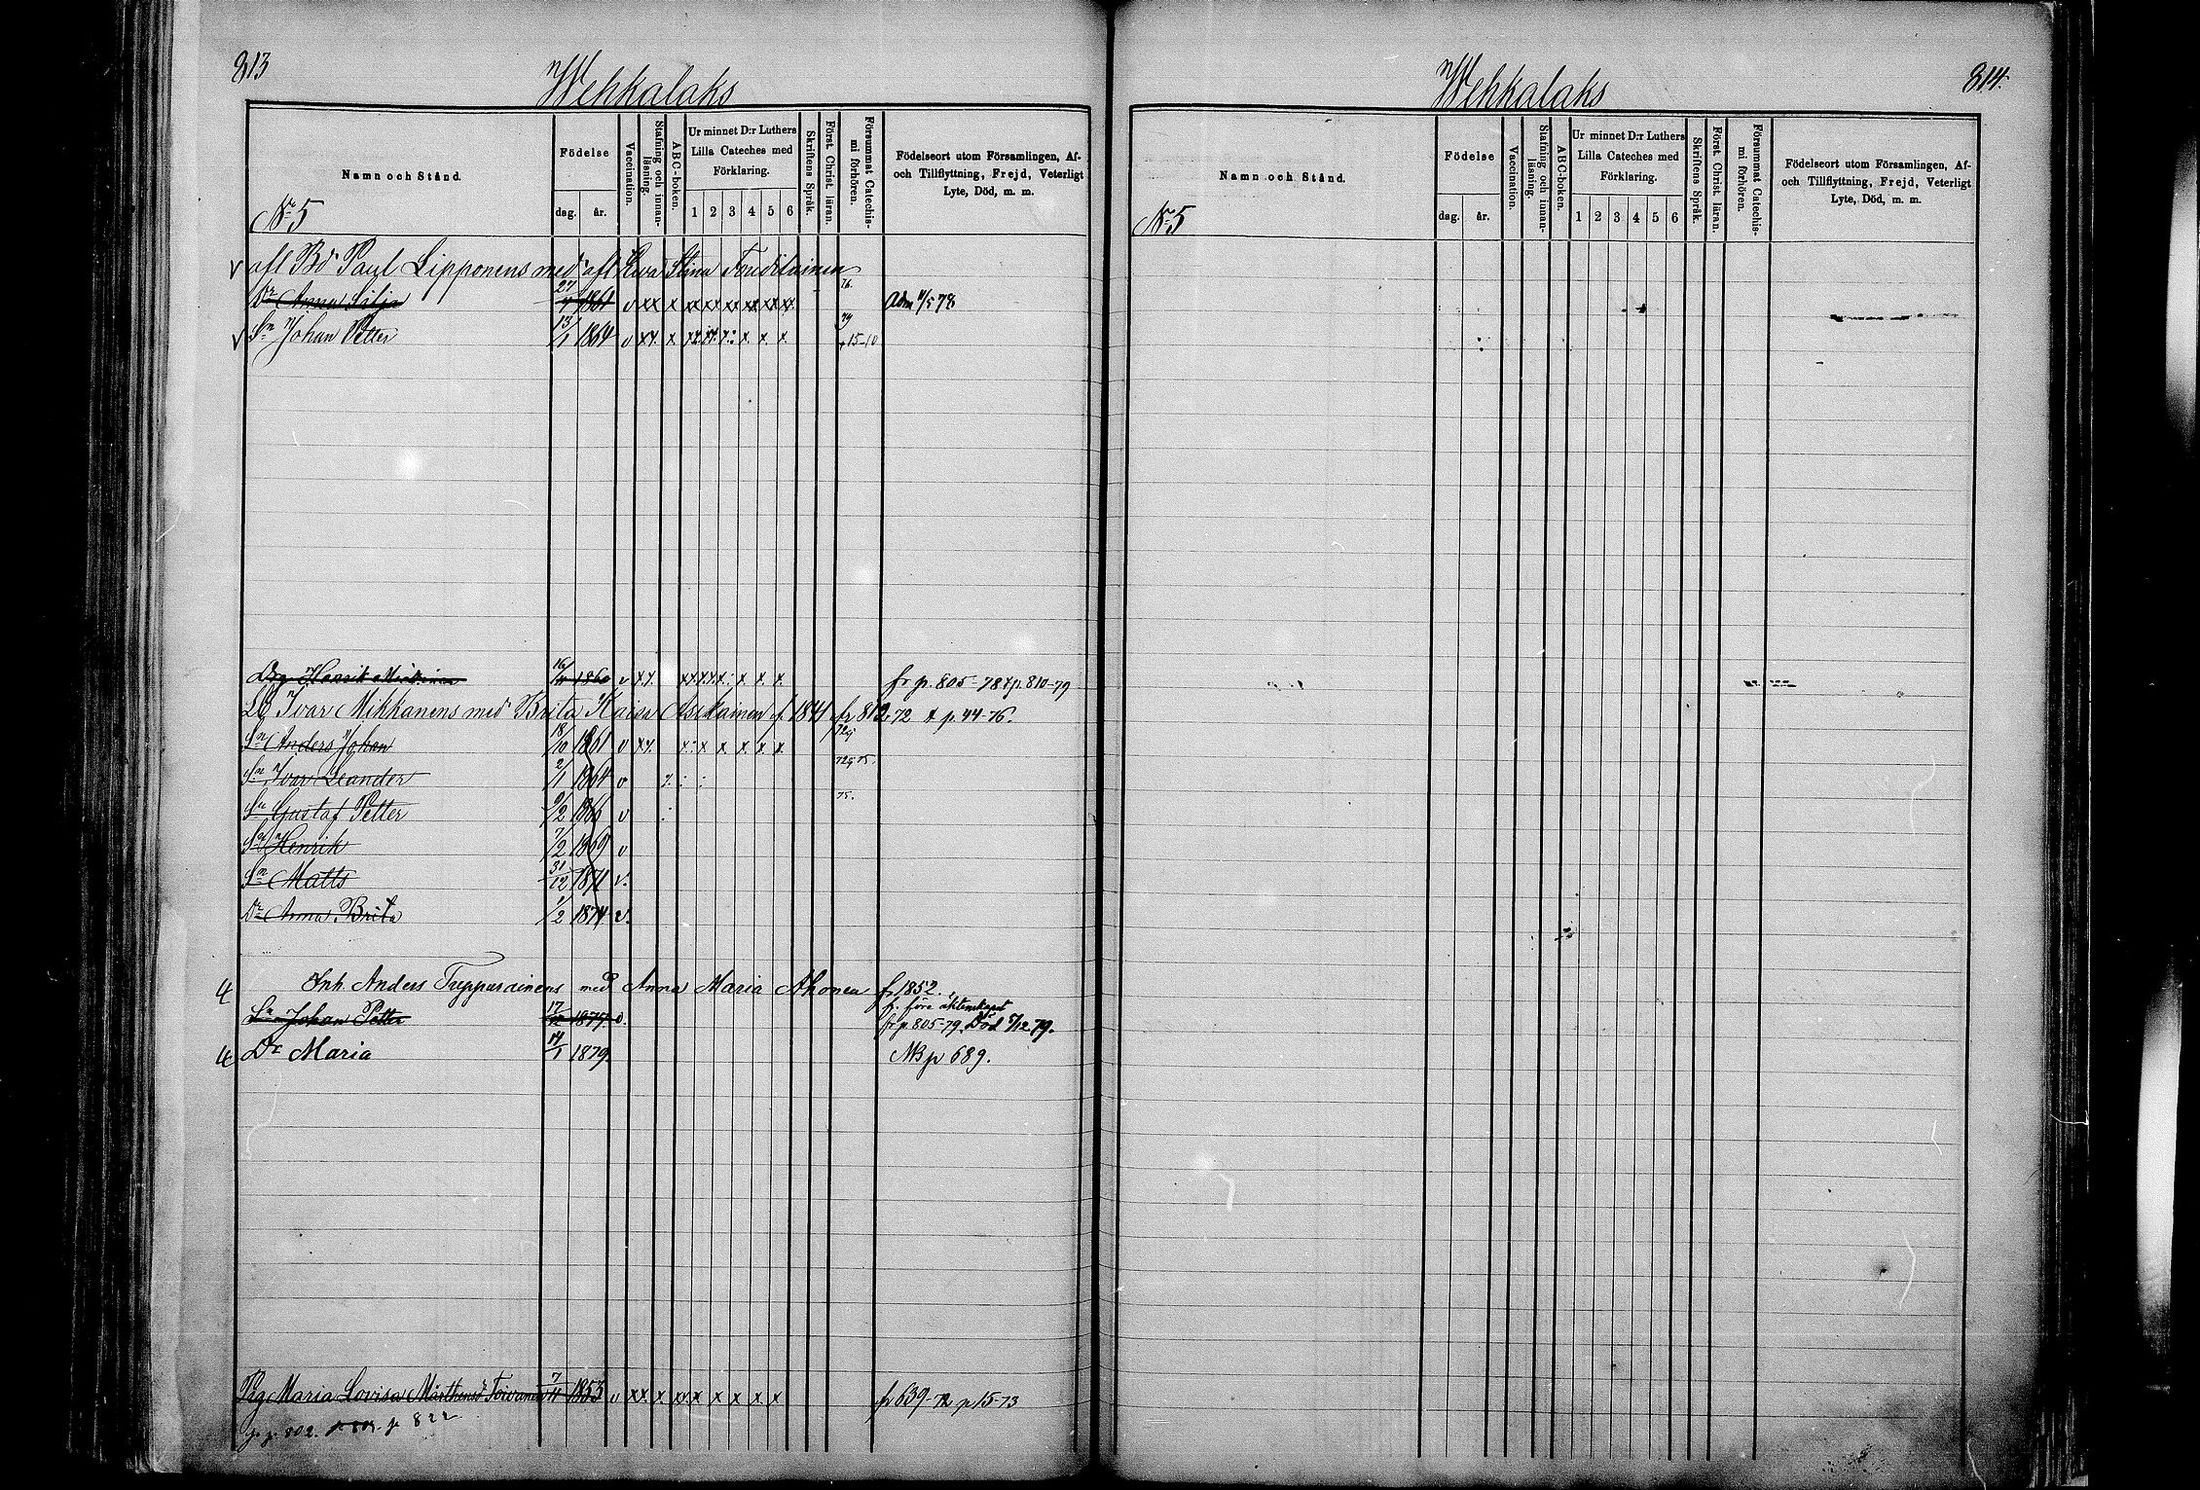 813
Wehkalaks
Namn och Stånd.
Födelse
dag. år.
Vaccination.
Stafning och innan-
läsning.
ABC-boken.
Ur minnet D:r Luthers
Lilla Cateches med
Förklaring.
1 2 3 4 5 6
Skriftens Språk.
Först. Christ. läran.
Försummat Catechis-
mi förhören.
Födelseort utom Församlingen, Af-
och Tillflyttning, Frejd, Veterligt
Lyte, Död, m. m.
Nr 5
v afl Bd Paul Lipponens med afl Ewa Stina
Dr Anna Silja 27/ 1861 v xx x xx xx xx xx xx xx 76. Adm 78
v Sn Johan Petter 13/1 1864 v xx x x x x 79 15-10
Drg Henrik 16/ 1860 v xx fr p. 805-78 p 810-79
Ivar Mikkanens med Brita Kaisa f. 1841 fr 812-72 p. 44-76.
Sn Anders Johan 18/10 1861 v xx x x x x x
Sn Ivar Leander 2/1 1864 v
Sn Gustaf Petter /2 1866 v 75.
Sn Henrik 7/2 1869 v
Sn Matts 31/12 1871 v.
Dr Anna Brita 1/2 1874 v.
4 Inh Anders Tuppurainens med Anna Maria Ahonen f. 1852.
f. före äktenskapet
Sn Johan Petter 17/ 1877 v. fr p. 805-79. Död 5/12 79.
4 Dr Maria 14/1 1879. NB p 689.
Pig Maria Lovisa Mårthensdr Toivanen 7/11 1853 v xx x. xx x x x x x fr 639-72 p 15-73
p. 802. p 822
814.
Wehkalaks
Namn och Stånd.
Födelse
dag. år.
Vaccination.
Stafning och innan-
läsning.
ABC-boken.
Ur minnet D:r Luthers
Lilla Cateches med
Förklaring.
1 2 3 4 5 6
Skriftens Språk.
Först. Christ. läran.
Försummat Catechis-
mi förhören.
Födelseort utom Församlingen, Af-
och Tillflyttning, Frejd, Veterligt
Lyte, Död, m. m.
Nr 5